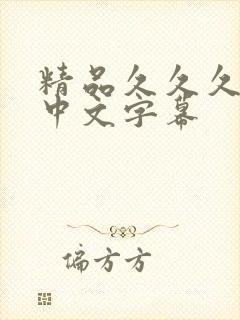 精品久久久
中文字幕
偏方方